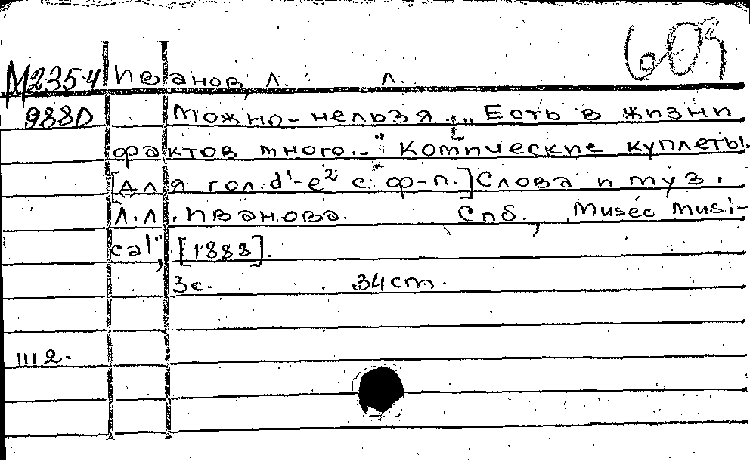 609
М235.4 Иванов, Л. Л.
988D Можно-нельзя. „Есть в жизни
фактов много.-" Комические куплеты.
[для гол. d¹-e² с ф-п.] Слова и муз.
Л.Л. Иванова. Спб., „Musée musi-
cal", [1883].
3с. 34cm.
III 2.